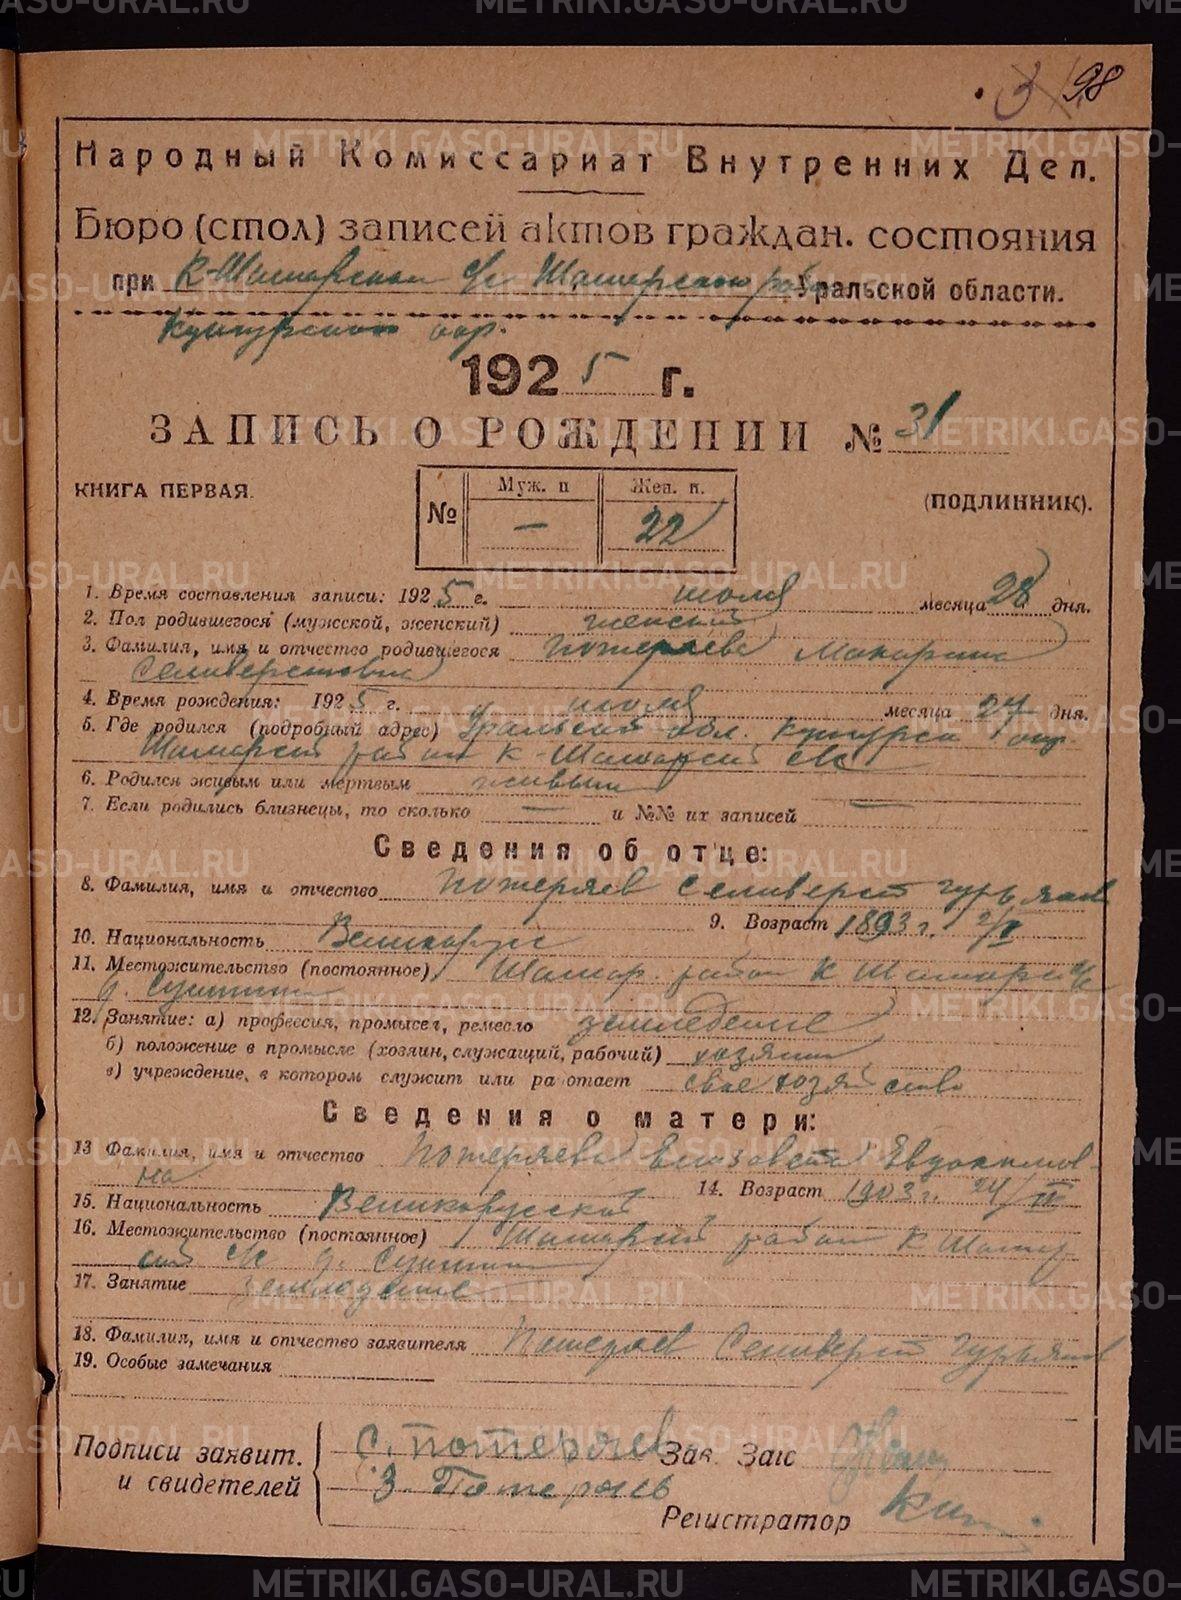 98
Народный Комиссариат Внутренних Дел.
Бюро (стол) записей актов граждан. состояния
при К-Шамарском с/с Шамарского рай Уральской области.
Кунгурского окр.
1925 г.
ЗАПИСЬ О РОЖДЕНИИ № 31
КНИГА ПЕРВАЯ.
(ПОДЛИННИК).
№ Муж. п Жен. п.
— 22
1. Время составления записи: 1925 г. июля месяца 28 дня.
2. Пол родившегося (мужской, женский) женский
3. Фамилия, имя и отчество родившегося Потеряева
Селиверстовна
4. Время рождения: 1925 г. июля месяца 24 дня.
5. Где родился (подробный адрес) Уральской обл. Кунгурск окр.
Шамарский район К-Шамарский с/с
6. Родился живым или мертвым живым
7. Если родились близнецы, то сколько — и №№ их записей —
Сведения об отце:
8. Фамилия, имя и отчество Потеряев Селиверст Гурьянов
9. Возраст 1893 г.
10. Национальность Великорус
11. Местожительство (постоянное) Шамар. район К Шамарск с/с
д.
12. Занятие: а) профессия, промысел, ремесло земледелие
б) положение в промысле (хозяин, служащий, рабочий) хозяин
в) учреждение, в котором служит или ра отает свое хозяйство
Сведения о матери:
13 Фамилия, имя и отчество Потеряева Елизавета Евдокимов-
на
14. Возраст 1903 г. 24/IV
15. Национальность Великорусской
16. Местожительство (постоянное) Шамарский район К Шамар-
ский с/с д.
17. Занятие земледелие
18. Фамилия, имя и отчество заявителя Потеряев Селиверст Гурьянов
19. Особые замечания
Подписи заявит.
и свидетелей
С. Потеряев
З. Потеряев
Зав. Загс
Регистратор
METRIKI.GASO-URAL.RU